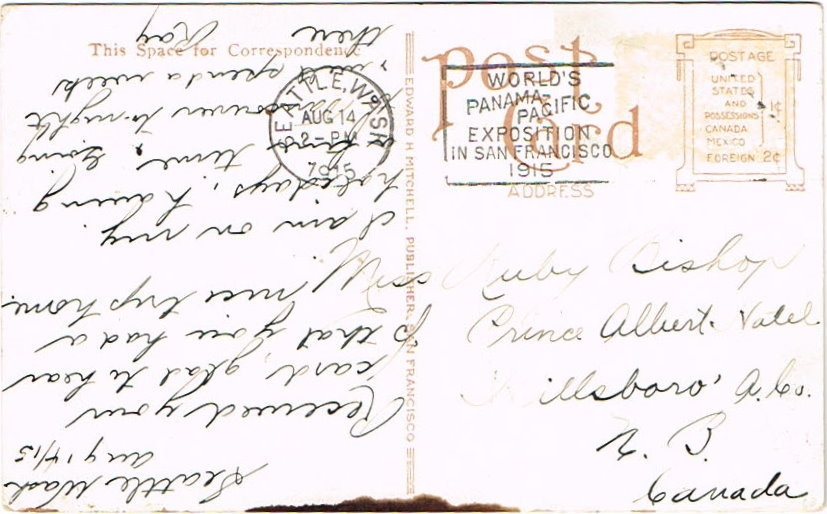 This Space for Correspondence
Seattle Wash
Aug 14/15
Received your
card, glad to hear
that you had a
nice trip home.
I am on my
holidays, having
time, going
to-night
will spend a week
there
Ray
EDWARD H. MITCHELL, PUBLISHER, SAN FRANCISCO
SEATTLE, WASH.
AUG 14
2-PM
1915
WORLD'S
PANAMA-
PACIFIC
EXPOSITION
IN SAN FRANCISCO
1915
Post
Card
ADDRESS
POSTAGE
UNITED
STATES
AND
POSSESSIONS
CANADA
MEXICO
1¢
FOREIGN 2¢
Miss Ruby Bishop
Prince Albert Hotel
Hillsboro, A. Co.
N. B.
Canada